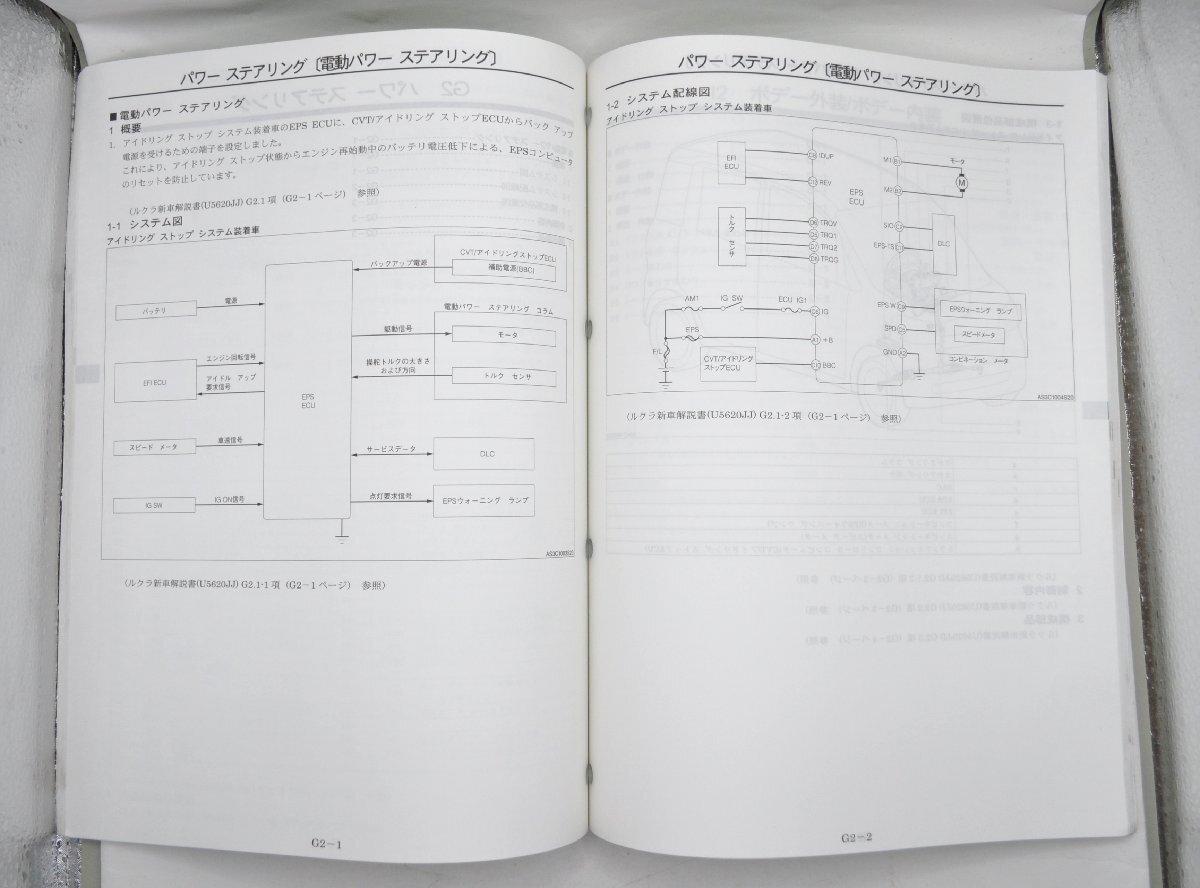 パワー ステアリング〔電動パワー ステアリング〕
■電動パワー ステアリング
1 概要
1. アイドリング ストップ システム装着車のEPS ECUに、CVT/アイドリング ストップECUからバック アップ
電源を受けるための端子を設定しました。
これにより、アイドリング ストップ状態からエンジン再始動中のバッテリ電圧低下による、EPSコンピュータ
のリセットを防止しています。
(ルクラ新車解説書(U5620JJ) G2.1項 (G2-1ページ) 参照)
1-1 システム図
アイドリング ストップ システム装着車
CVT/アイドリングストップECU
バックアップ電源
補助電源(BBC)
電源
バッテリ
電動パワー ステアリング コラム
駆動信号
モータ
エンジン回転信号
操舵トルクの大きさ
および方向
トルク センサ
EFI ECU
アイドル アップ
要求信号
EPS
ECU
スピード メータ
車速信号
サービスデータ
DLC
IG SW
IG ON信号
点灯要求信号
EPSウォーニング ランプ
AS3C1003S20
(ルクラ新車解説書(U5620JJ) G2.1-1項 (G2-1ページ) 参照)
G2-1
パワー ステアリング〔電動パワー ステアリング〕
1-2 システム配線図
アイドリング ストップ システム装着車
EFI
ECU
C9 IDUP
C13 REV
EPS
ECU
M1 B1
M2 B2
モータ
M
トルク
センサ
D6 TRQV
D5 TRQ1
D7 TRQ2
D8 TRQG
SIO
EPS-TS
DLC
AM1
IG SW
ECU IG1
IG
EPS
A1 +B
F/L
CVT/アイドリング
ストップECU
BBC
EPS W
SPD
GND A2
EPSウォーニング ランプ
スピードメータ
コンビネーション メータ
AS3C1004S20
(ルクラ新車解説書(U5620JJ) G2.1-2項 (G2-1ページ) 参照)
G2-2